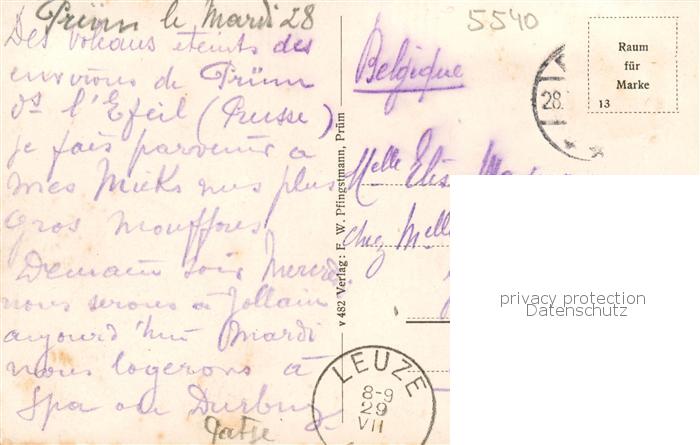 Prüm le Mardi 28
Des volcans éteints des
environs de Prüm
ds l'Efeil (Prusse)
je fais parvenir à
mes Mieks mes plus
gros
Demain soir Mercredi
nous serons à Jollain
aujourd'hui Mardi
nous logerons à
Spa ou Durbuy
5540
Belgique
Raum
für
Marke
13
28.
Melle Elis
chez Melle
v 482 Verlag: F. W. Pfingstmann, Prüm
LEUZE
8-9
29
VII
privacy protection
Datenschutz